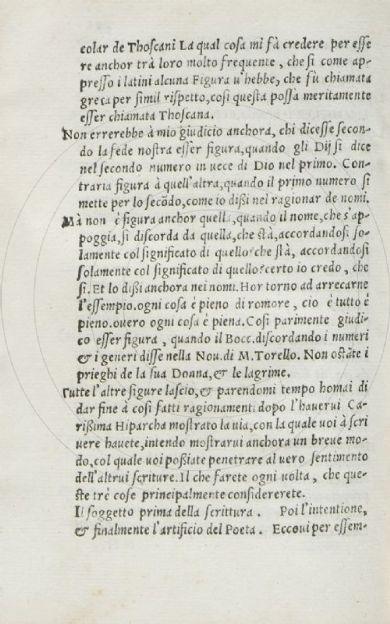 colar de Thoscani La qual cosa mi fà credere per esse
re anchor trà loro molto frequente, che si come ap-
presso i latini alcuna Figura u'hebbe, che fù chiamata
greca per simil rispetto, cosi questa possa meritamente
esser chiamata Thoscana.
Non errerebbe à mio giudicio anchora, chi dicesse secon-
do la fede nostra esser figura, quando gli Dij si dice
nel secondo numero in uece di Dio nel primo. Con-
traria figura à quell'altra, quando il primo numero si
mette per lo secōdo, come io dissi nel ragionar de nomi.
Mà non è figura anchor quella, quando il nome, che s'ap
poggia, si discorda da quella, che stà, accordandosi so-
lamente col significato di quello? che stà, accordandosi
solamente col significato di quello? certo io credo, che
si. Et lo dissi anchora nei nomi. Hor torno ad arrecarne
l'essempio. ogni cosa è pieno di romore, cio è tutto è
pieno. ouero ogni cosa è piena. Cosi parimente giudi-
co esser figura, quando il Bocc. discordando i numeri
& i generi disse nella Nou. di M. Torello. Non ostāte i
prieghi de la sua Donna, & le lagrime.
Tutte l'altre figure lascio, & parendomi tempo homai di
dar fine à cosi fatti ragionamenti dopo l'hauerui Ca-
rissima Hiparcha mostrato la uia, con la quale uoi à scri
uere hauete, intendo mostrarui anchora un breue mo-
do, col quale uoi possiate penetrare al uero sentimento
dell'altrui scriture. Il che farete ogni uolta, che que-
ste trè cose principalmente considererete.
Il soggetto prima della scrittura. Poi l'intentione,
& finalmente l'artificio del Poeta. Eccoui per essem-